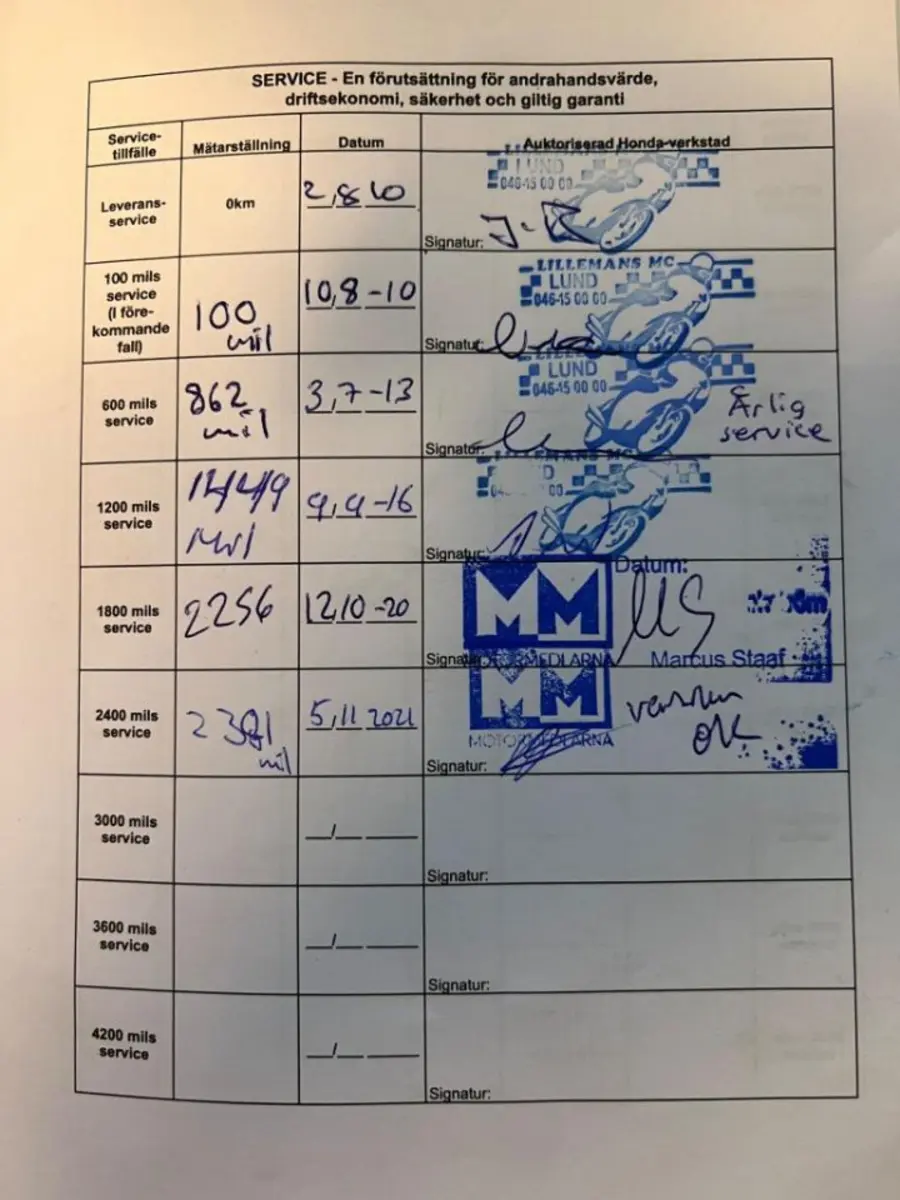 SERVICE - En förutsättning för andrahandsvärde,
driftsekonomi, säkerhet och giltig garanti
Service-
tillfälle
Mätarställning
Datum
Auktoriserad Honda-verkstad
Leverans-
service
0km
2,8 10
LUND
046-15 00 00
Signatur:
100 mils
service
(I före-
kommande
fall)
100
mil
10,8-10
LILLEMANS MC
LUND
046-15 00 00
Signatur:
600 mils
service
862
mil
3,7-13
LILLEMANS MC
LUND
046-15 00 00
Årlig
service
Signatur:
1200 mils
service
Mil
9,9-16
LILLEMANS MC
Signatur:
1800 mils
service
2256
12,10-20
MM
MOTORMEDLARNA
Datum:
Marcus Staaf
Signatur:
2400 mils
service
2381
mil
5,11 2021
MM
MOTORMEDLARNA
OK
Signatur:
3000 mils
service
Signatur:
3600 mils
service
Signatur:
4200 mils
service
Signatur: